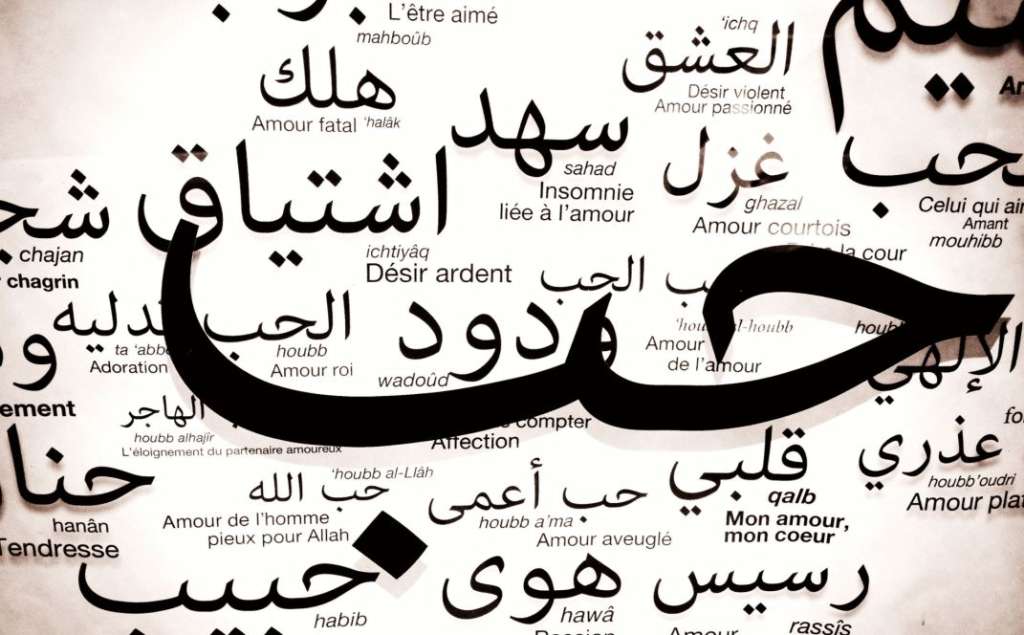 L'être aimé
mahboûb
هلك
Amour fatal 'halâk
العشق
'ichq
Désir violent
Amour passionné
سهد
sahad
Insomnie
liée à l'amour
غزل
ghazal
Amour courtois
la cour
Celui qui
Amant
mouhibb
chajan
chagrin
اشتياق
ichtiyâq
Désir ardent
الحب
حب
ta 'abbe
Adoration
الحب
houbb
Amour roi
ودود
wadoûd
compter
Affection
'houbb al-houbb
Amour
de l'amour
الإلهي
الهاجر
houbb alhajir
L'éloignement du partenaire amoureux
hanân
Tendresse
حب الله
'houbb al-Llâh
Amour de l'homme
pieux pour Allah
حب أعمى
houbb a'ma
Amour aveuglé
قلبي
qalb
Mon amour,
mon coeur
عذري
houbb'oudri
Amour
حبيب
habib
هوى
hawâ
Passion
رسيس
rassîs
Amour